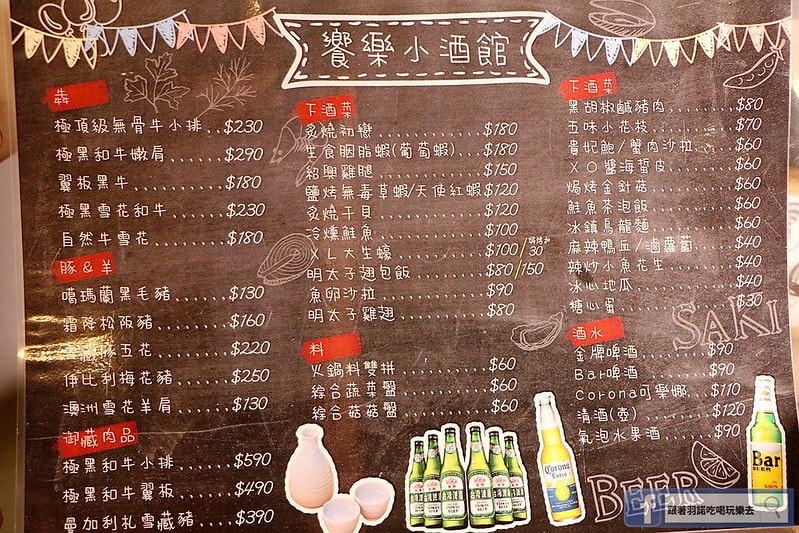 饗樂小酒館
犇
極頂級無骨牛小排..$230
極黑和牛嫩肩.......$290
翼板黑牛.........$180
極黑雪花和牛......$230
自然牛雪花.......$180
豚&羊
噶瑪蘭黑毛豬......$130
霜降松阪豬.......$160
豚五花........$220
伊比利梅花豬......$250
澳洲雪花羊肩......$130
御藏肉品
極黑和牛小排......$590
極黑和牛翼板......$490
曼加利札雪藏豬....$390
下酒菜
炙燒初戀............$180
生食胭脂蝦(葡萄蝦)...$180
紹興醉腿............$150
鹽烤無毒草蝦/天使紅蝦$120
炙燒干貝............$120
冷燻鮭魚............$100
XL大生蠔...........$100/焗烤加30
明太子翅包飯........$80/150
魚卵沙拉............$90
明太子雞翅..........$80
料
火鍋料雙拼..........$60
綜合蔬菜盤..........$60
綜合菇菇盤..........$60
下酒菜
黑胡椒鹹豬肉.......$80
五味小花枝.........$70
貴妃鮑/蟹肉沙拉....$60
XO醬海蜇皮........$60
焗烤金針菇.........$60
鮭魚茶泡飯.........$60
冰鎮烏龍麵.........$60
麻辣鴨血/滷蘿蔔....$40
辣炒小魚花生.......$40
冰心地瓜...........$40
糖心蛋.............$30
SAKI
酒水
金牌啤酒.......$90
Bar啤酒........$90
Corona可樂娜...$110
清酒(壺).......$120
氣泡水果酒.....$90
BEER
Corona
Extra
Bar
BEER
台灣啤酒
f 跟著羽諾吃喝玩樂去